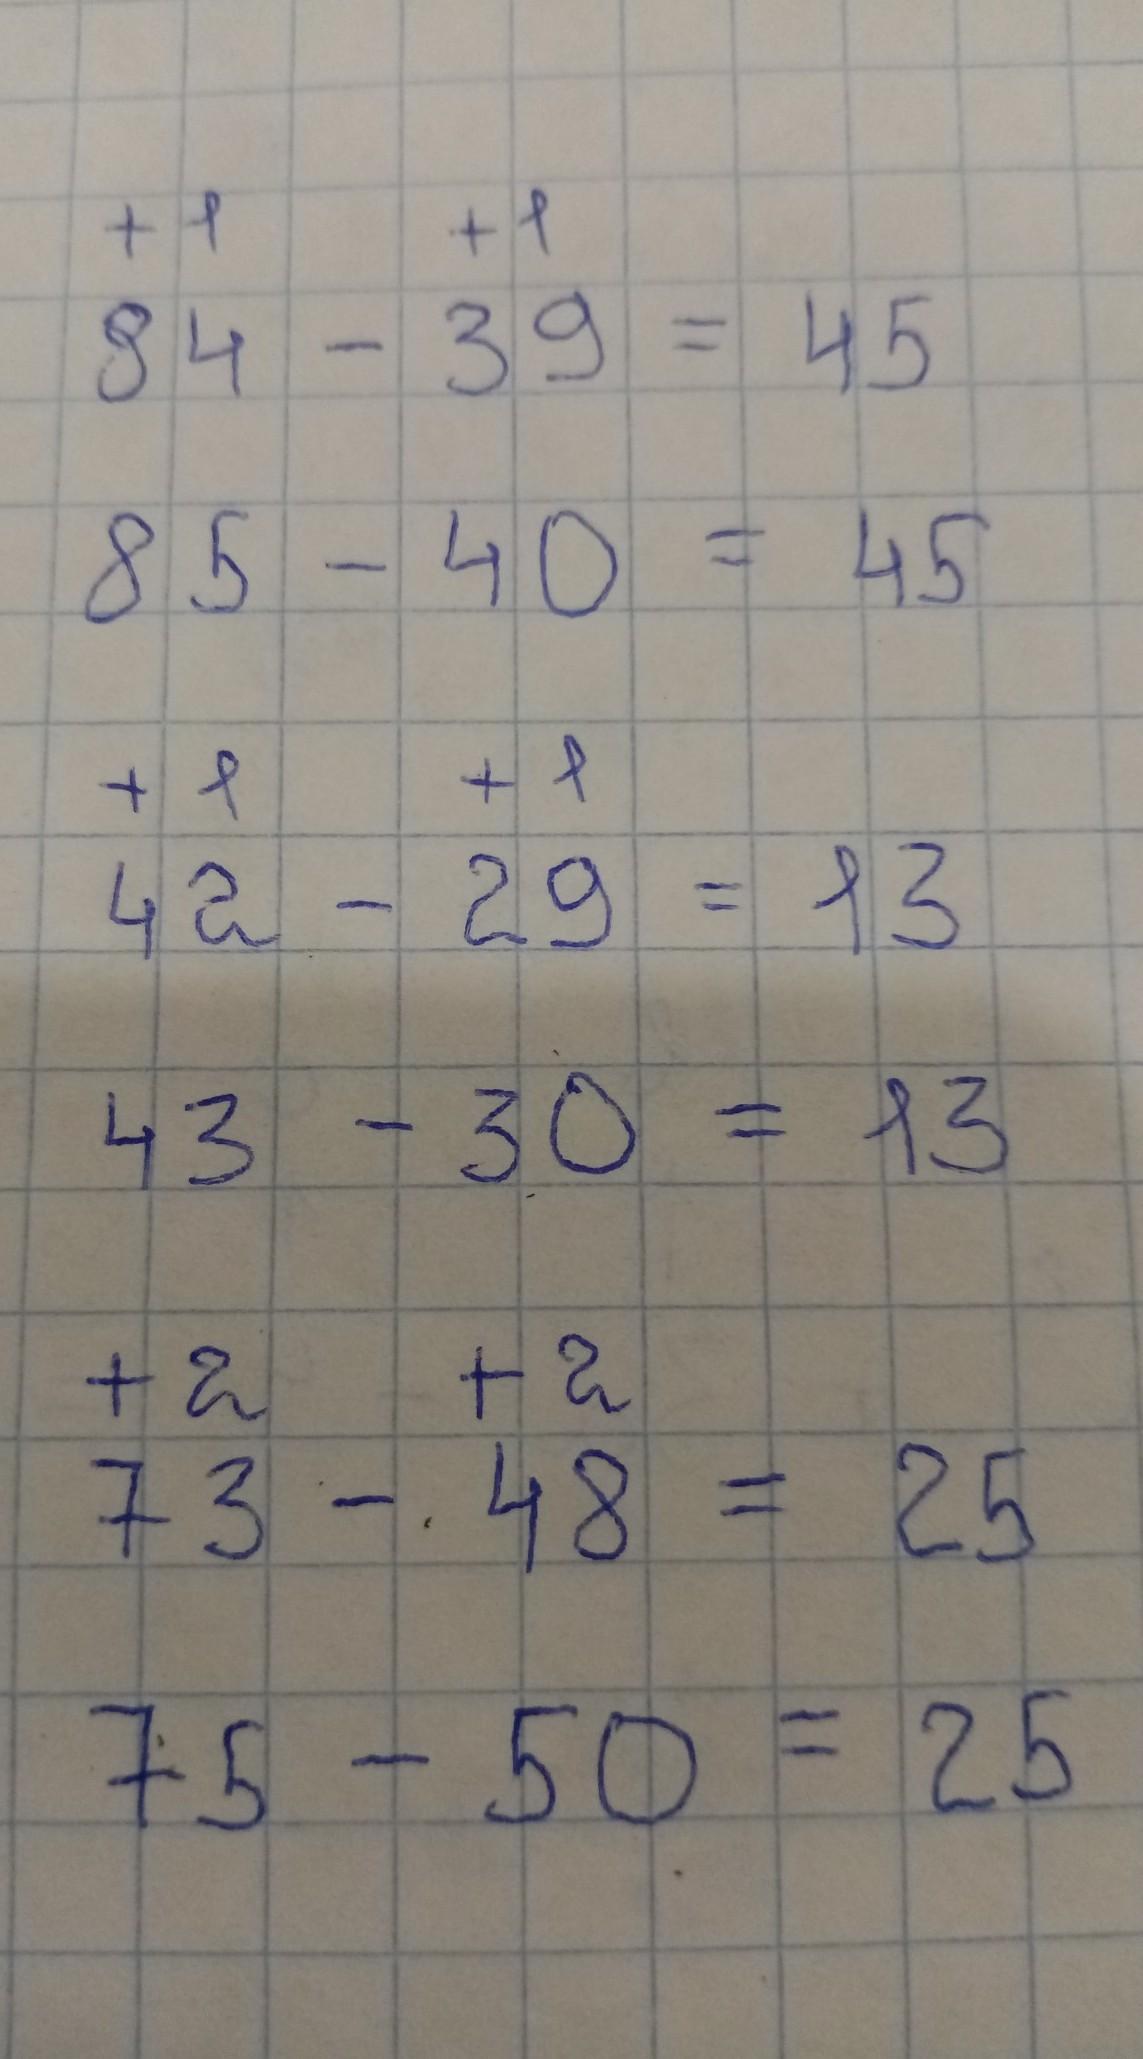 +1 +1
84 - 39 = 45
85 - 40 = 45
+1 +1
42 - 29 = 13
43 - 30 = 13
+2 +2
73 - 48 = 25
75 - 50 = 25